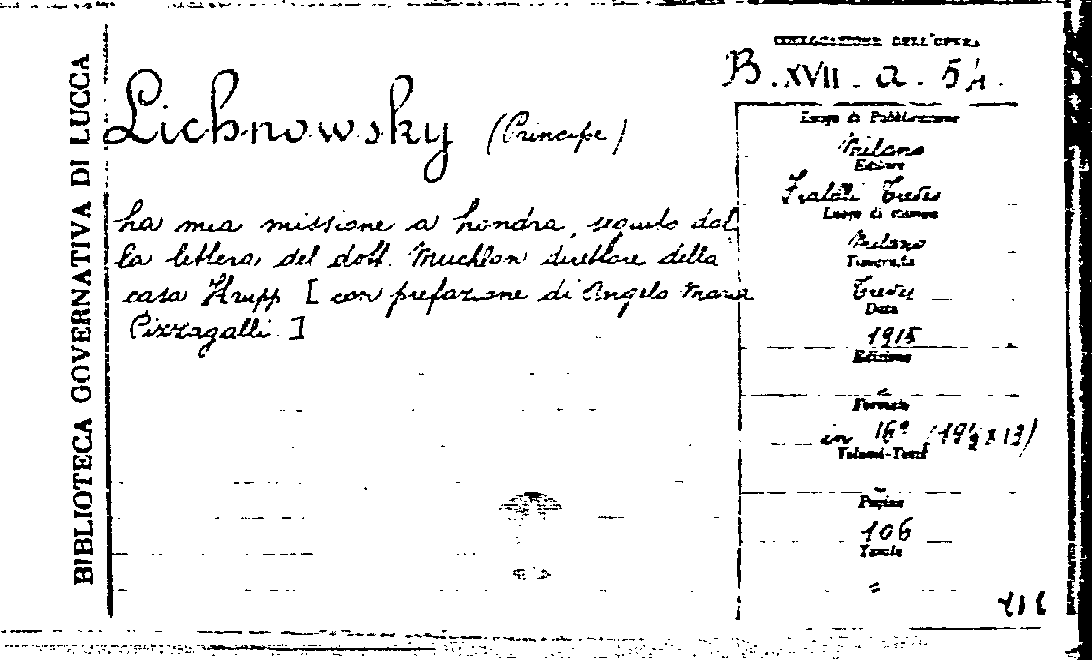 BIBLIOTECA GOVERNATIVA DI LUCCA
COLLOCAZIONE DELL'OPERA
B. XVII. a. 54.
Lichnowsky (Principe)
La mia missione a Londra, seguito dal
la lettera del dott. Muehlon direttore della
casa Krupp [con prefazione di Angelo Maria
Pizzagalli.]
Luogo di Pubblicazione
Milano
Editore
Fratelli Treves
Luogo di stampa
Milano
Tipografia
Treves
Data
1915
Edizione
=
Formato
in 16° (19½ x 13)
Volumi-Tomi
Pagine
106
Tavole
=